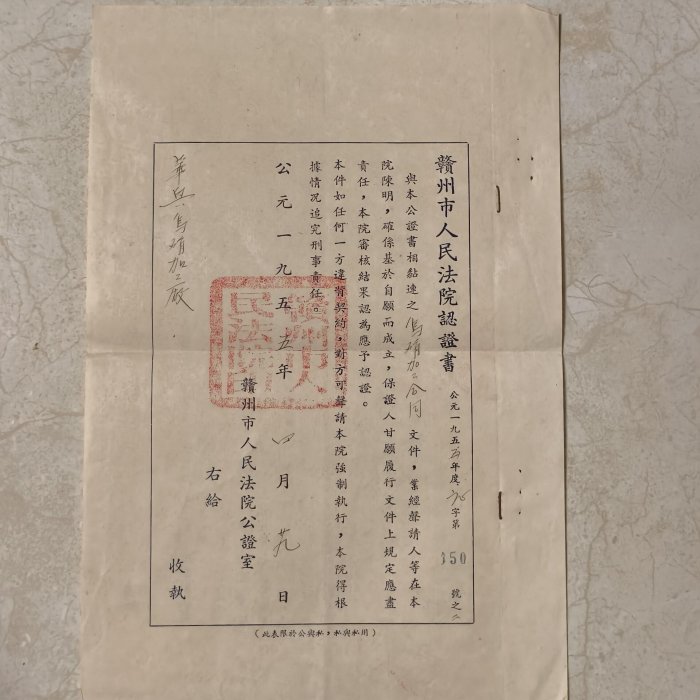 贛州市人民法院認證書
公元一九五五年度 字第350號之二
與本公證書相黏連之烏硝加工合同文件，業經聲請人等在本
院陳明，確係基於自願而成立，保證人甘願履行文件上規定應盡
責任，本院審核結果認為應予認證。
本件如任何一方違背契約，對方可聲請本院強制執行，本院得根
據情况追究刑事責任。
公元一九五五年四月廿九日
贛州市人民法院公證室
右給
收執
加工廠
贛州市人民法院印
（此表限於公與私，私與私用）